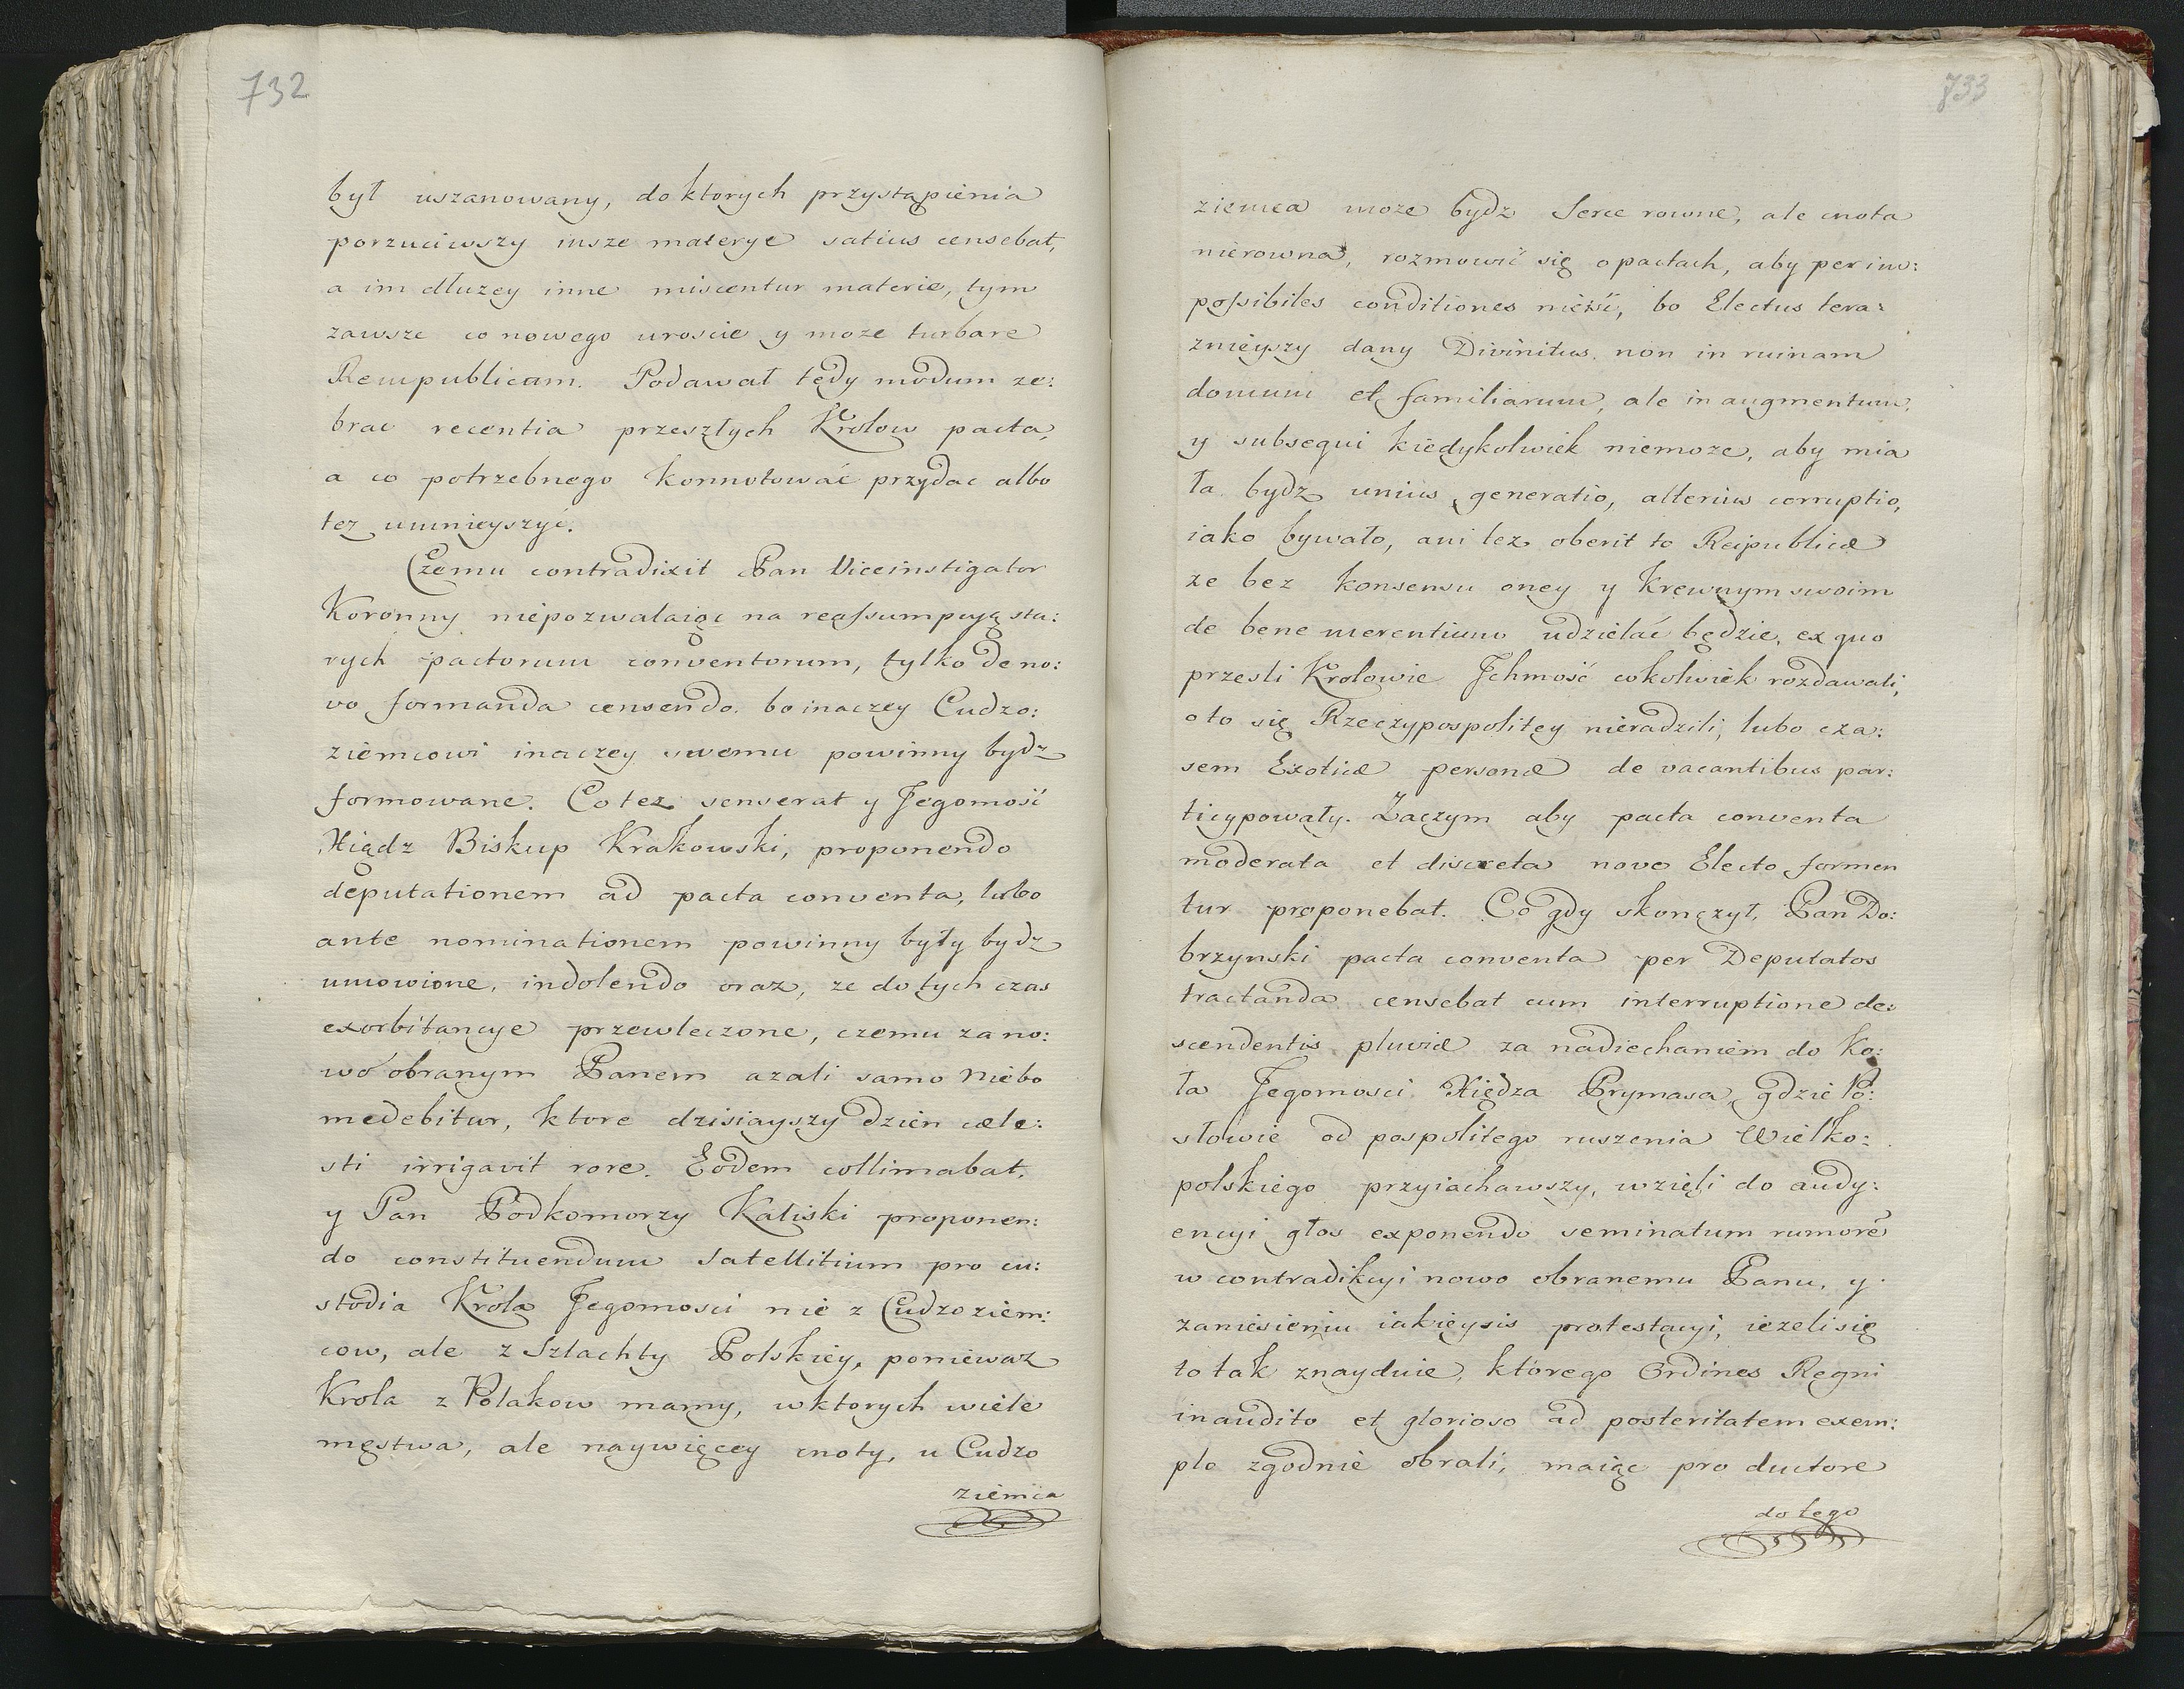 732
był uszanowany, do ktorych przystąpienia
porzuciwszy insze materye satius censebat,
a im dłuzey inne miscentur materie, tym
zawsze co nowego uroscie y moze turbare
Rempublicam. Podawał tędy modum ze:
brac recentia przeszłych Krolow pacta,
a co potrzebnego konnotować przydac albo
tez umnieyszyć.
Czemu contradixit Pan Viceinstigator
Koronny niepozwalaiąc na reassumpcyą sta:
rych pactorum conventorum, tylko de no:
vo formanda censendo. bo inaczey Cudzo:
ziemcowi inaczey swemu powinny bydz
formowane. Co tez senserat y Jegomość
Xiądz Biskup Krakowski, proponendo
deputationem ad pacta conventa, lubo
ante nominationem powinny były bydz
umowione, indolendo oraz, ze do tych czas
exorbitancye przewleczone, czemu za no:
wo obranym Panem azali samo Niebo
medebitur, ktore dzisiayszy dzien cæle:
sti irrigavit rore. Eodem collimabat,
y Pan Podkomorzy Kaliski proponen:
do constituendum Satellitium pro cu:
stodia Krola Jegomosci nie z Cudzoziem:
cow, ale z Szlachty Polskiey, poniewaz
Krola z Polakow mamy, w ktorych wiele
męstwa, ale naywięcey cnoty, u Cudzo
ziemca
733
ziemca moze bydz Serce rowne, ale cnota
nierowna, rozmowić się o pactach, aby per im:
possibiles conditiones nieśś, bo Electus tera:
znieyszy dany Divinitus non in ruinam
domum et familiarum, ale in augmentum,
y subsequi kiedykolwiek niemoze, aby mia
ła bydz unius generatio, alterius corruptio,
iako bywało, ani tez oberit to Reipublicæ
ze bez konsensu oney y Krewnym swoim
de bene merentium udzielać będzie, ex quo
przesli Krolowie Jchmość cokolwiek rozdawali,
o to się Rzeczypospolitey nieradzili, lubo cza:
sem Exoticæ personæ de vacantibus par:
ticypowały. Zaczym aby pacta conventa
moderata et discreta novo Electo formen
tur proponebat. Co gdy skonczył, Pan Do:
brzynski pacta conventa per Deputatos
tractanda censebat cum interruptione de:
scendentis pluviæ za nadiechaniem do Ko:
ła Jegomosci Xiędza Prymasa, gdzie Po:
słowie od pospolitego ruszenia Wielko:
polskiego przyiachawszy, wzięli do audy:
encyi głos exponendo seminatum rumorẽ
w contradikcyi nowo obranemu Panu, y
zaniesieniu iakieysis protestacyi, iezeli się
to tak znayduie, którego Ordines Regni
inaudito et glorioso ad posteritatem exem:
plo zgodnie obrali, maiąc pro ductore
do tego